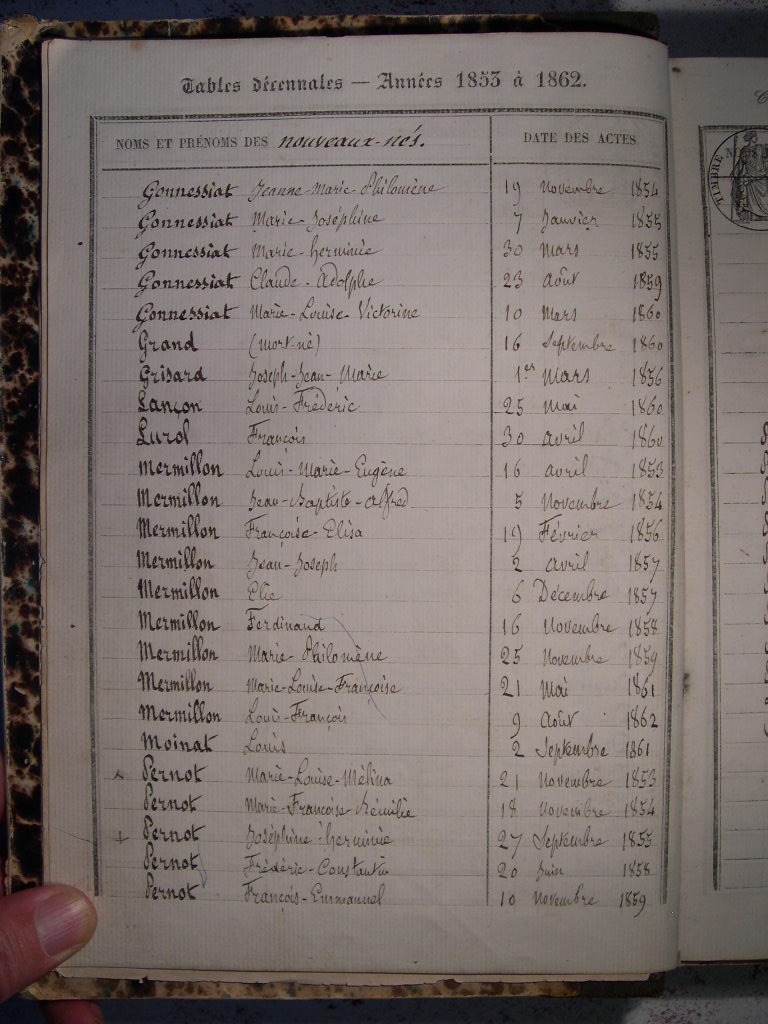 Tables décennales — Années 1853 à 1862.
NOMS ET PRÉNOMS DES nouveaux-nés. DATE DES ACTES
Gonnessiat Jeanne-Marie-Philomène 19 Novembre 1854
Gonnessiat Marie-Joséphine 7 Janvier 1855
Gonnessiat Marie-herminie 30 Mars 1855
Gonnessiat Claude-Adolphe 23 Août 1859
Gonnessiat Marie-Louise-Victorine 10 Mars 1860
Grand (mort-né) 16 Septembre 1860
Grisard Joseph-Jean-Marie 1er Mars 1856
Lançon Louis-Fréderic 25 Mai 1860
Lurol François 30 avril 1860
Mermillon Louis-Marie-Eugène 16 avril 1853
Mermillon Jean-Baptiste-alfred 5 Novembre 1854
Mermillon Françoise-Elisa 19 Février 1856
Mermillon Jean-Joseph 2 avril 1857
Mermillon Elie 6 Décembre 1857
Mermillon Ferdinand 16 Novembre 1858
Mermillon Marie-Philomène 25 Novembre 1859
Mermillon Marie-Louise-Françoise 21 Mai 1861
Mermillon Louis-François 9 Août 1862
Moinat Louis 2 Septembre 1861
Pernot Marie-Louise-Mélina 21 Novembre 1853
Pernot Marie-Françoise 18 Novembre 1854
+ Pernot Joséphine-herminie 27 Septembre 1855
Pernot Frédéric-Constantin 20 Juin 1858
Pernot François-Emmanuel 10 Novembre 1859
TIMBRE